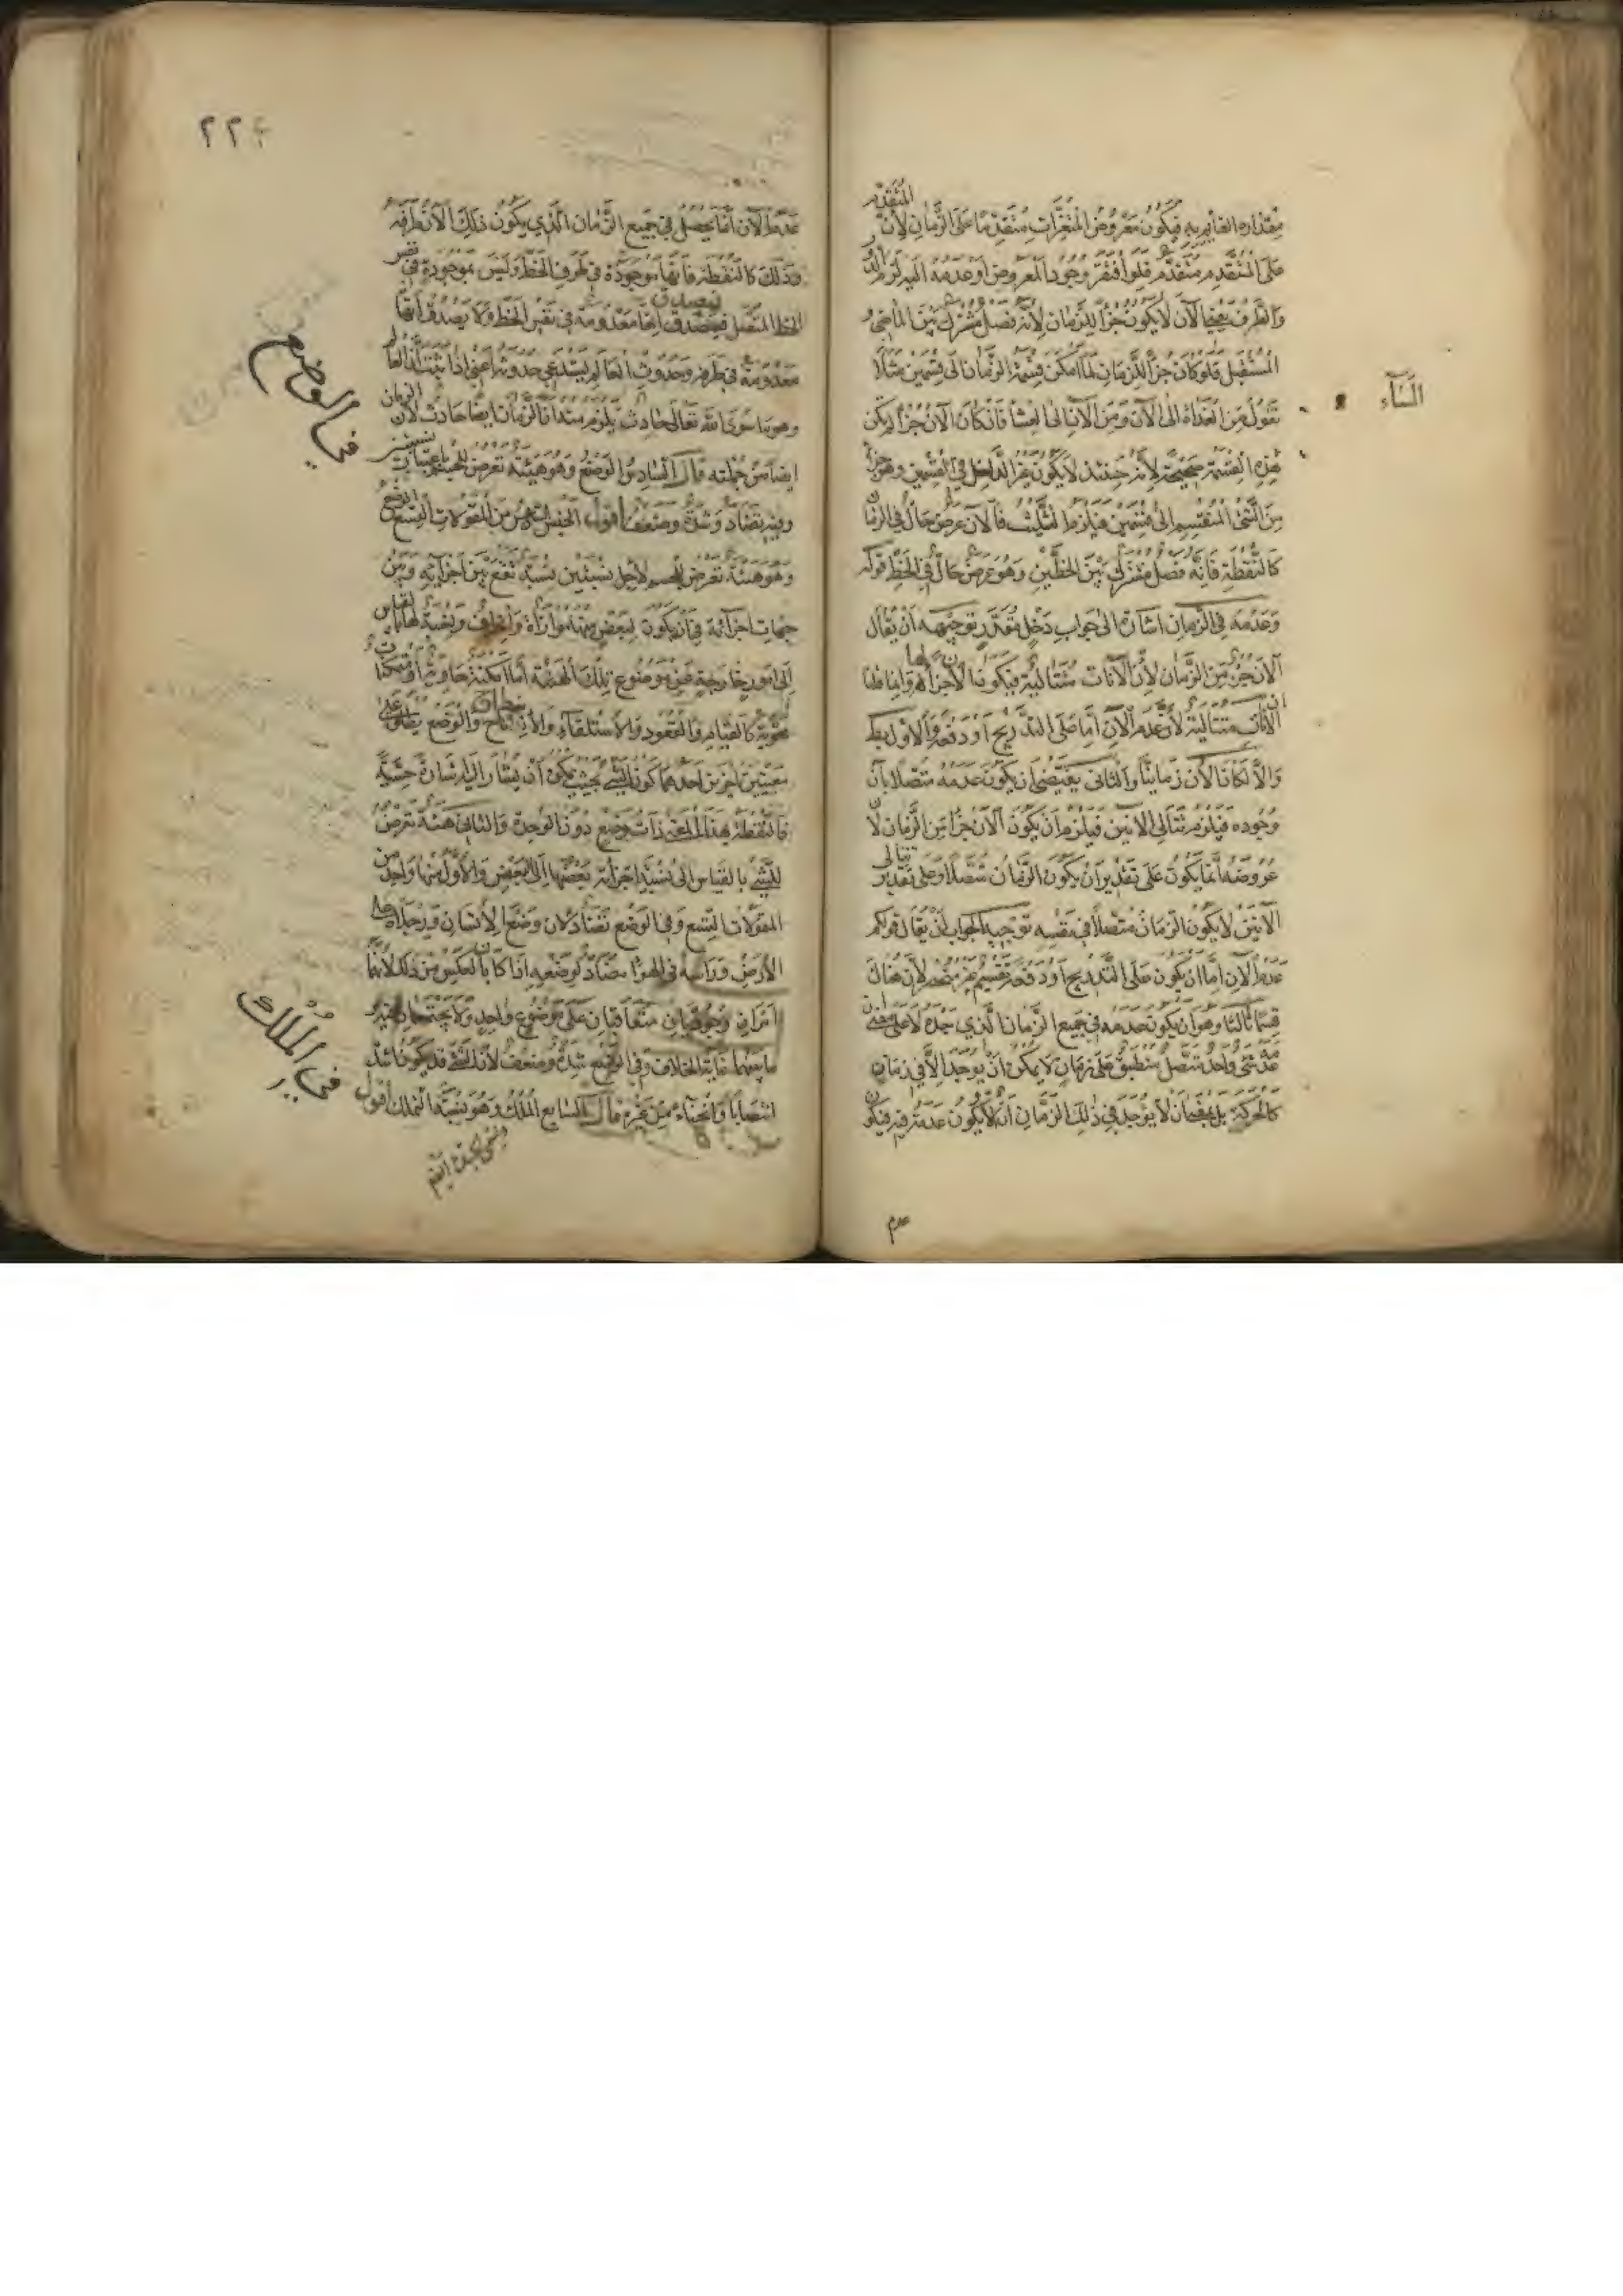 المتقدم
مقداره القائم به فيكون معروض المتغيرات متقدما على الزمان لأن
على المتقدم متقدم فلو افتقر وجود المعروض او عدمه اليه لزم الدور
والطرف يعني الآن لا يكون جزأ للزمان لأنه فصل مشترك بين الماضي و
المستقبل فلو كان جزأ للزمان لما أمكن قسمة الزمان الى قسمين مثلا
نقول من الغداة الى الآن ومن الآن الى العشا فان كان الآن جزأ لم يكن
هذه القسمة صحيحة لأنه حينئذ لا يكون غير الداخل في القسمين وهو جزأ
من الشئ المنقسم الى قسمين فيلزم التثليث فالآن عرض حال في الزمان
كالنقطة فانه فصل مشترك بين الخطين وهو عرض حال في الخط قوله
وعدمه في الزمان اشارة الى جواب دخل مقدر توجيهه أن يقال
الآن جزء من الزمان لأن الآنات متتالية فيكون الأجزأ له وانما قلنا
الآنات متتالية لأن عدم الآن إما على التدريج أو دفعة والأول بط
والا لكان الآن زمانيا والثاني يقتضي أن يكون عدمه متصلا بآن
وجوده فيلزم تتالي الآنين فيلزم أن يكون الآن جزأ من الزمان لأن
عروضه انما يكون على تقدير أن يكون الزمان متصلا وعلى تقدير تتالي
الآنين لا يكون الزمان متصلا في نفسه توجيه الجواب أن يقال قولكم
عدم الآن إما ان يكون على التدريج او دفعة تقسيم غير منحصر لأن هناك
قسما ثالثا وهو أن يكون عدمه في جميع الزمان الذي بعده لا على معنى أن
عدمه شئ واحد متصل منطبق على زمان لا يمكن أن يوجد الا في زمان
كالحركة بل بمعنى أن لا يوجد في ذلك الزمان آن لا يكون عدمه فيه فيكون
عدم
الناء
٢٢٤
عدم الآن انما يحصل في جميع الزمان الذي يكون ذلك الآن طرفه
وذلك كالنقطة فانها موجودة في طرف الخط وليس بموجودة في نفس
الخط المتصل فيصدق انها معدومة في نفس الخط ولا يصدق أنها
معدومة في طرفه وحدوث العالم يستدعي حدوثه اعني اذا ثبت أن العالم
وهو ما سوى الله تعالى حادث يلزم منه أن الزمان ايضا حادث لأن الزمان
ايضا من جملته قال السادس الوضع وهو هيئة تعرض للجسم باعتبار نسبتين
وفيه تضاد وشدة وضعف أقول الجنس السادس من المقولات التسع الوضع
وهو هيئة تعرض للجسم لأجل نسبتين نسبة تقع بين اجزائه وبين
جهات اجزائه في أن يكون لبعض منها موازاة وانحراف ونسبة لها بالقياس
إلى أمور خارجة عن موضوع تلك الهيئة أما أمكنة حاوية أو متمكنات
محوية كالقيام والقعود والاستلقاء والانبطاح والوضع يطلق على
معنيين آخرين احدهما كون الشئ بحيث يمكن أن يشار اليه اشارة حسية
فالنقطة بهذا المعنى ذات وضع دون الوحدة والثاني هيئة تعرض
للشئ بالقياس الى نسبة اجزائه بعضها الى البعض والأول منها واحد من
المقولات التسع وفي الوضع تضاد لأن وضع الأنسان ورجلاه على
الأرض ورأسه في الهوا مضاد لوضعه اذا كان بالعكس من ذلك لأنهما
امران وجوديان متعاقبان على موضوع واحد ولا يجتمعان فيه و
ما بينهما غاية الخلاف وفي الوضع شدة وضعف لأن الشئ قد يكون اشد
انتصابا وانحناء من غيره قال السابع الملك وهو نسبة التملك أقول
في الوضع
في الملك